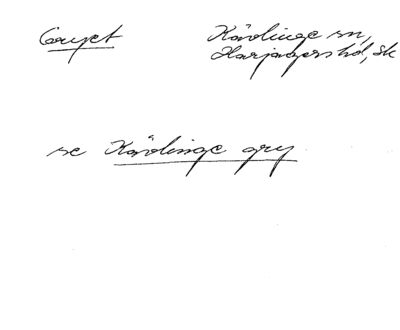 Gryet Kävlinge sn,
Harjagers hd, Sk
se Kävlinge gry